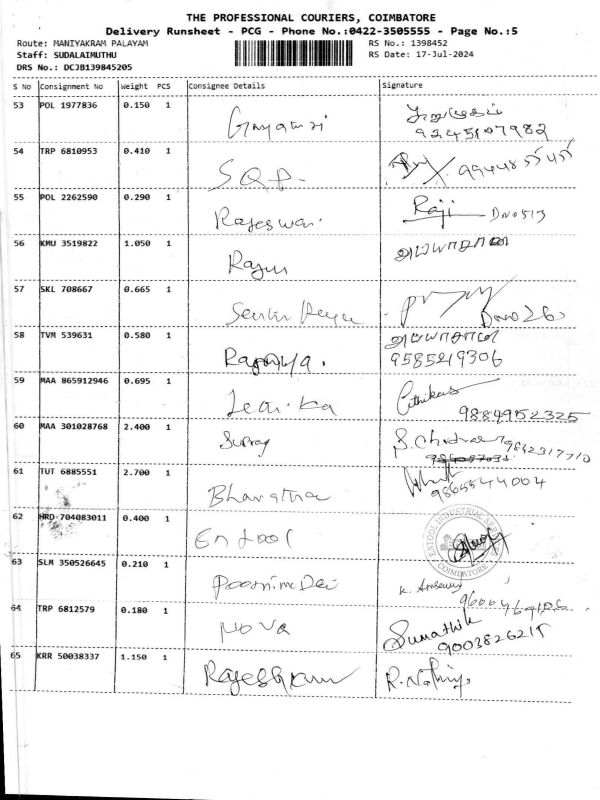 THE PROFESSIONAL COURIERS, COIMBATORE
Delivery Runsheet - PCG - Phone No.:0422-3505555 - Page No.:5
Route: MANIYAKRAM PALAYAM RS No.: 1398452
Staff: SUDALAIMUTHU RS Date: 17-Jul-2024
DRS No.: DCJB139845205
S No Consignment No Weight PCS Consignee Details Signature
53 POL 1977836 0.150 1 Gayatri
9245107982
54 TRP 6810953 0.410 1 SQP
55 POL 2262590 0.290 1 Rajeswari Raji DNo513
56 KMU 3519822 1.050 1
57 SKL 708667 0.665 1 DNo 26
58 TVM 539631 0.580 1 Ramya.
9585219306
59 MAA 865912946 0.695 1
9884952325
60 MAA 301028768 2.400 1 9842317710
61 TUT 6885551 2.700 1
9865844004
62 HRD 704083011 0.400 1 Entool
ENTOOL INDUSTRIAL
COIMBATORE
63 SLM 350526645 0.210 1 Poornima Devi
64 TRP 6812579 0.180 1 NOVA Sumathi
9003826215
65 KRR 50038337 1.150 1 Rajeshkumar